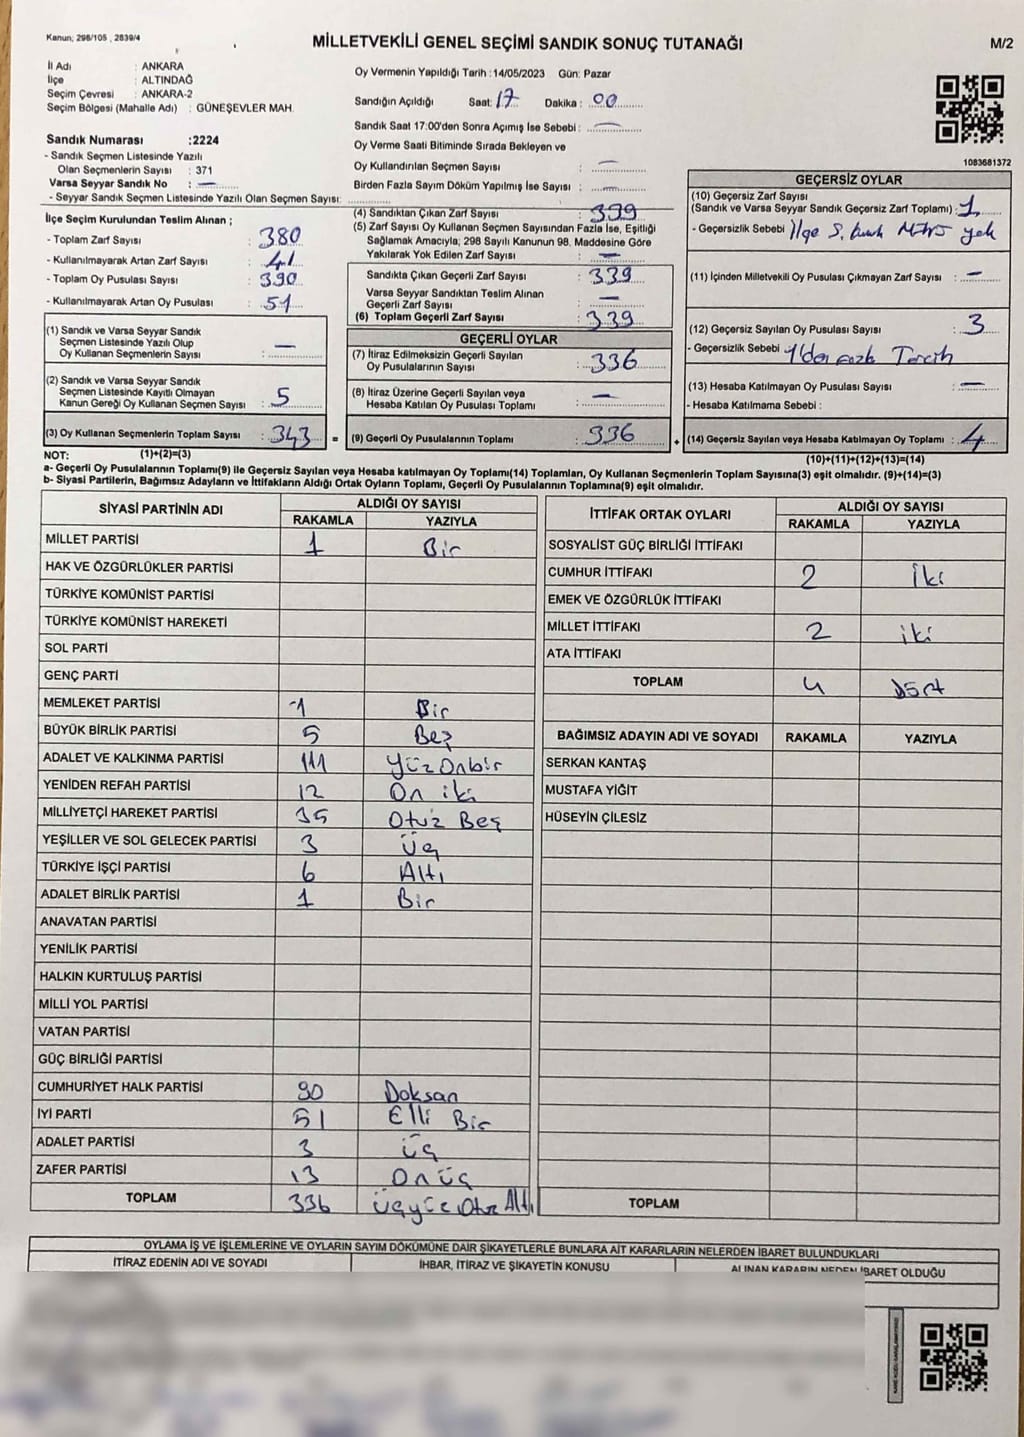 Kanun; 298/105 , 2839/4
MİLLETVEKİLİ GENEL SEÇİMİ SANDIK SONUÇ TUTANAĞI
M/2
İl Adı : ANKARA
İlçe : ALTINDAĞ
Seçim Çevresi : ANKARA-2
Seçim Bölgesi (Mahalle Adı) : GÜNEŞEVLER MAH.
Sandık Numarası :2224
- Sandık Seçmen Listesinde Yazılı
Olan Seçmenlerin Sayısı : 371
Varsa Seyyar Sandık No : —
- Seyyar Sandık Seçmen Listesinde Yazılı Olan Seçmen Sayısı:
Oy Vermenin Yapıldığı Tarih :14/05/2023 Gün: Pazar
Sandığın Açıldığı Saat: 17 Dakika : 00
Sandık Saat 17:00'den Sonra Açımış İse Sebebi : —
Oy Verme Saati Bitiminde Sırada Bekleyen ve
Oy Kullandırılan Seçmen Sayısı : —
Birden Fazla Sayım Döküm Yapılmış İse Sayısı : —
1083681372
İlçe Seçim Kurulundan Teslim Alınan ;
- Toplam Zarf Sayısı : 380
- Kullanılmayarak Artan Zarf Sayısı : 41
- Toplam Oy Pusulası Sayısı : 390
- Kullanılmayarak Artan Oy Pusulası : 51
(1) Sandık ve Varsa Seyyar Sandık
Seçmen Listesinde Yazılı Olup
Oy Kullanan Seçmenlerin Sayısı : —
(2) Sandık ve Varsa Seyyar Sandık
Seçmen Listesinde Kayıtlı Olmayan
Kanun Gereği Oy Kullanan Seçmen Sayısı : 5
(3) Oy Kullanan Seçmenlerin Toplam Sayısı : 343 =
(4) Sandıktan Çıkan Zarf Sayısı : 339
(5) Zarf Sayısı Oy Kullanan Seçmen Sayısından Fazla İse, Eşitliği
Sağlamak Amacıyla; 298 Sayılı Kanunun 98. Maddesine Göre
Yakılarak Yok Edilen Zarf Sayısı : —
Sandıkta Çıkan Geçerli Zarf Sayısı : 339
Varsa Seyyar Sandıktan Teslim Alınan
Geçerli Zarf Sayısı : —
(6) Toplam Geçerli Zarf Sayısı : 339
GEÇERLİ OYLAR
(7) İtiraz Edilmeksizin Geçerli Sayılan
Oy Pusulalarının Sayısı : 336
(8) İtiraz Üzerine Geçerli Sayılan veya
Hesaba Katılan Oy Pusulası Toplamı : —
(9) Geçerli Oy Pusulalarının Toplamı : 336 +
GEÇERSİZ OYLAR
(10) Geçersiz Zarf Sayısı
(Sandık ve Varsa Seyyar Sandık Geçersiz Zarf Toplamı) : 1
- Geçersizlik Sebebi : İlçe S. yok
(11) İçinden Milletvekili Oy Pusulası Çıkmayan Zarf Sayısı : —
(12) Geçersiz Sayılan Oy Pusulası Sayısı : 3
- Geçersizlik Sebebi : 1'den fazla Tercih
(13) Hesaba Katılmayan Oy Pusulası Sayısı : —
- Hesaba Katılmama Sebebi :
(14) Geçersiz Sayılan veya Hesaba Katılmayan Oy Toplamı : 4
NOT: (1)+(2)=(3) (10)+(11)+(12)+(13)=(14)
a- Geçerli Oy Pusulalarının Toplamı(9) ile Geçersiz Sayılan veya Hesaba katılmayan Oy Toplamı(14) Toplamları, Oy Kullanan Seçmenlerin Toplam Sayısına(3) eşit olmalıdır. (9)+(14)=(3)
b- Siyasi Partilerin, Bağımsız Adayların ve İttifakların Aldığı Ortak Oyların Toplamı, Geçerli Oy Pusulalarının Toplamına(9) eşit olmalıdır.
SİYASİ PARTİNİN ADI ALDIĞI OY SAYISI
RAKAMLA YAZIYLA
MİLLET PARTİSİ 1 Bir
HAK VE ÖZGÜRLÜKLER PARTİSİ
TÜRKİYE KOMÜNİST PARTİSİ
TÜRKİYE KOMÜNİST HAREKETİ
SOL PARTİ
GENÇ PARTİ
MEMLEKET PARTİSİ 1 Bir
BÜYÜK BİRLİK PARTİSİ 5 Beş
ADALET VE KALKINMA PARTİSİ 111 Yüz Onbir
YENİDEN REFAH PARTİSİ 12 On iki
MİLLİYETÇİ HAREKET PARTİSİ 35 Otuz Beş
YEŞİLLER VE SOL GELECEK PARTİSİ 3 Üç
TÜRKİYE İŞÇİ PARTİSİ 6 Altı
ADALET BİRLİK PARTİSİ 1 Bir
ANAVATAN PARTİSİ
YENİLİK PARTİSİ
HALKIN KURTULUŞ PARTİSİ
MİLLİ YOL PARTİSİ
VATAN PARTİSİ
GÜÇ BİRLİĞİ PARTİSİ
CUMHURİYET HALK PARTİSİ 90 Doksan
İYİ PARTİ 51 Elli Bir
ADALET PARTİSİ 3 Üç
ZAFER PARTİSİ 13 Onüç
TOPLAM 336 Üçyüz Otuz Altı
İTTİFAK ORTAK OYLARI ALDIĞI OY SAYISI
RAKAMLA YAZIYLA
SOSYALİST GÜÇ BİRLİĞİ İTTİFAKI
CUMHUR İTTİFAKI 2 İki
EMEK VE ÖZGÜRLÜK İTTİFAKI
MİLLET İTTİFAKI 2 iki
ATA İTTİFAKI
TOPLAM 4 Dört
BAĞIMSIZ ADAYIN ADI VE SOYADI RAKAMLA YAZIYLA
SERKAN KANTAŞ
MUSTAFA YİĞİT
HÜSEYİN ÇİLESİZ
TOPLAM
OYLAMA İŞ VE İŞLEMLERİNE VE OYLARIN SAYIM DÖKÜMÜNE DAİR ŞİKAYETLERLE BUNLARA AİT KARARLARIN NELERDEN İBARET BULUNDUKLARI
İTİRAZ EDENİN ADI VE SOYADI İHBAR, İTİRAZ VE ŞİKAYETİN KONUSU ALINAN KARARIN NEDEN İBARET OLDUĞU